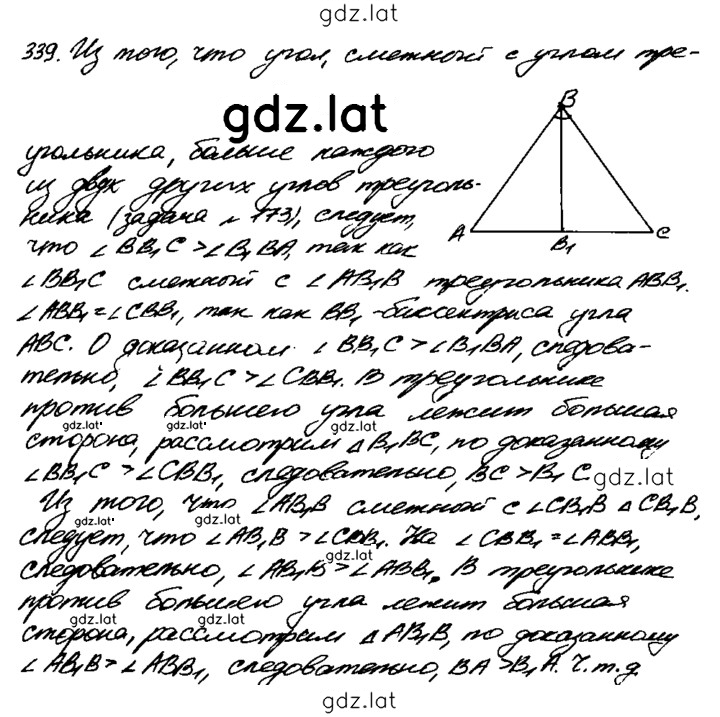 gdz.lat
339. Из того, что угол, смежный с углом тре-
gdz.lat
B
угольника, больше каждого
из двух других углов треуголь-
ника (задача № 173), следует,
A B₁ C
что ∠BB₁C > ∠B₁BA, так как
∠BB₁C смежный с ∠AB₁B треугольника ABB₁.
∠ABB₁ = ∠CBB₁, так как BB₁ - биссектриса угла
ABC. О доказанном ∠BB₁C > ∠B₁BA, следова-
тельно, ∠BB₁C > ∠CBB₁. В треугольнике
против большего угла лежит большая
gdz.lat gdz.lat
сторона, рассмотрим △B₁BC, по доказанному
∠BB₁C > ∠CBB₁, следовательно, BC > B₁C.
gdz.lat
Из того, что ∠AB₁B смежный с ∠CB₁B △CB₁B,
gdz.lat gdz.lat
следует, что ∠AB₁B > ∠CBB₁. Но ∠CBB₁ = ∠ABB₁,
gdz.lat
следовательно, ∠AB₁B > ∠ABB₁. В треугольнике
против большего угла лежит большая
gdz.lat gdz.lat
сторона, рассмотрим △AB₁B, по доказанному
∠AB₁B > ∠ABB₁, следовательно, BA > B₁A. Ч.т.д.
gdz.lat